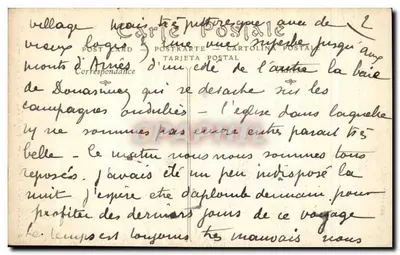 village mais très pittoresque avec de 2
Carte Postale
vieux logis & une vue superbe jusqu'aux
POST CARD POSTKARTE - CARTOLINA POSTALE
TARJETA POSTAL
monts d'Arrées d'un côté de l'autre la baie
Correspondance
de Douarnenez qui se détache sur les
campagnes ondulées - l'église dans laquelle
ny ne sommes pas encore entré parait très
belle - le matin nous nous sommes tous
reposés. j'avais été un peu indisposé la
nuit j'espère être d'aplomb demain pour
profiter des derniers jours de ce voyage
le temps est toujours très mauvais nous